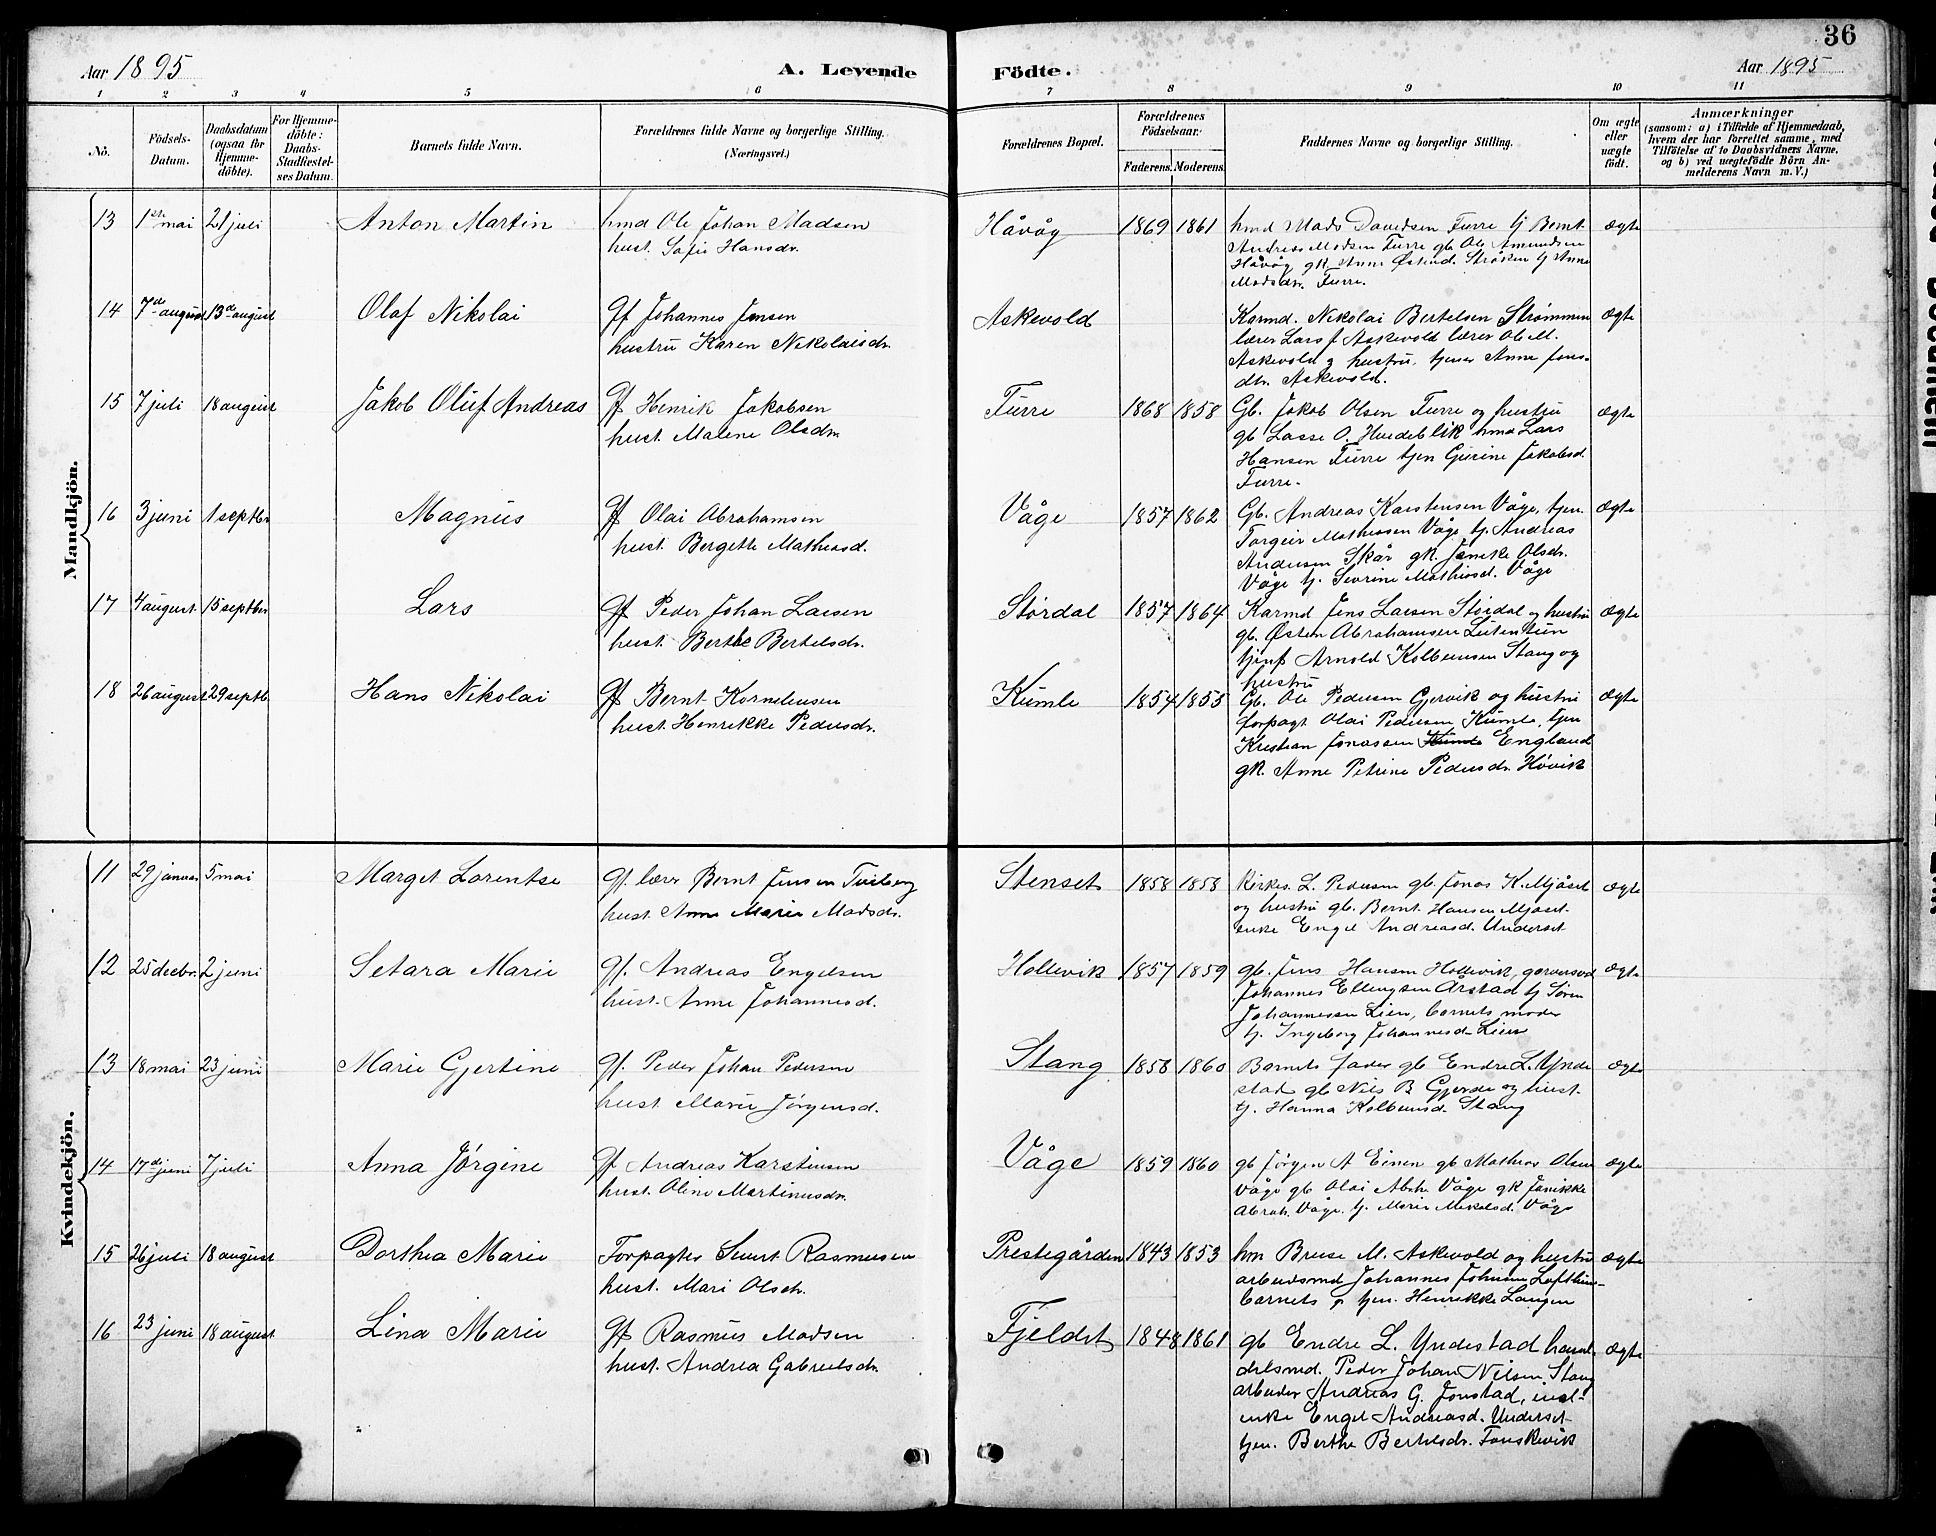 36
Aar 1895
A. Levende
Födte.
Aar 1895
1 2 3 4 5 6 7 8 9 10 11
No.
Födsels-
Datum.
Daabsdatum
(ogsaa for
Hjemme-
döbte).
For Hjemme-
döbte:
Daabs-
Stadfæstel-
ses Datum.
Barnets fulde Navn.
Forældrenes fulde Navne og borgerlige Stilling.
(Næringsvei.)
Forældrenes Bopæl.
Forældrenes
Födselsaar:
Faderens. Moderens.
Faddernes Navne og borgerlige Stilling.
Om ægte
eller
uægte
födt.
Anmærkninger
(saasom: a) i Tilfælde af Hjemmedaab,
hvem der har forrettet samme, med
Tilföielse af to Daabsvidners Navne,
og b) ved uægtefödte Börn An-
melderens Navn m. V.)
Mandkjön.
13 1ste mai 21 juli Anton Martin hmd Ole Johan Madsen
hust. Sofie Hansdr.
Håvåg 1869 1861 hmd Mads Davidsen Furre tj Bernt
Andreas Madsen Furre gb Ole Amundsen
Håvåg gk. Anne Strøken tj Anne
Madsdr. Furre.
ægte
14 7d august 13d august Olaf Nikolai Gf Johannes Jensen
hustru Karen Nikolaisdr.
Askevold Karmd. Nikolai Bertelsen Strømmen
lærer Lars J Askevold lærer Ole M.
Askevold og hustru, tjener Anne Jons-
dtr. Askevold.
ægte
15 7 juli 18 august Jakob Oluf Andreas Gf Henrik Jakobsen
hust. Malene Olsdr.
Furre 1868 1858 Gb. Jakob Olsen Furre og hustru
gb Lasse O. Huedeblik hmd Lars
Hansen Furre tjen Gurine Jakobsd.
Furre.
ægte
16 3 juni 1 septbr Magnus Gf Olai Abrahamsen
hust. Bergette Mathiasd.
Våge 1857 1862 Gb. Andreas Karstensen Våge, tjen.
Torgeir Mathiassen Våge tj. Andreas
Andersen Skår gk. Janike Olsdr.
Våge tj. Sevrine Mathiasd. Våge
ægte
17 4 august 15 septbr Lars Gf Peder Johan Larsen
hust. Berthe Bertelsdr.
Størdal 1857 1864 Karmd Jens Larsen Størdal og hustru
gb. Østen Abrahamsen Lutentun
tjenf Arnold Kolbeinsen Stang og
hustru
ægte
18 26 august 29 septb. Hans Nikolai Gf Bernt Korneliussen
hust. Henrikke Pedersdr.
Kumle 1854 1855 Gb. Ole Pedersen Gjervik og hustru
forpagt Olai Pedersen Kumle, tjen
Kristian Jonassen Kumle England
gk. Anne Petrine Pedersdr. Høvik
ægte
Kvindekjön.
11 29 januar 5 mai Marget Lorentse Gf. lærer Bernt Jensen Tviberg
hust. Anne Marie Madsdr.
Stenset 1858 1858 Kirkes. L. Pedersen gb. Jonas K. Mjåset
og hustru gb. Bernt Hansen Mjåset
enke Engel Andreasd. Underset
ægte
12 25 decbr. 2 juni Setara Marie Gf. Andreas Engelsen
hust. Anne Johannesd.
Hollevik 1857 1859 gb. Jens Hansen Hollevik, garversvd
Johannes Ellingsen Årstad tj Søren
Johannessen Lien, barnets moder
tj. Ingeborg Johannesd. Lien
ægte
13 18 mai 23 juni Marie Gjertine Gf. Peder Johan Pedersen
hust. Marie Jørgensd.
Stang 1858 1860 Barnets fader gb Endre L. Ynde
stad gb Nils B Gjerde og hust.
tj. Hanna Kolbeinsd. Stang
ægte
14 17di juni 7 juli Anna Jørgine Gf Andreas Karstensen
hust. Oline Martinusdr.
Våge 1859 1860 gb Jørgen A Einen gb Mathias Olsen
Våge gb Olai Abrh. Våge gk Janikke
Abrah. Våge. tj. Marie Mikalsd. Våge
ægte
15 26 juli 18 august Dorthea Marie Forpagter Sivert Rasmussen
hust. Mari Olsdr.
Prestegården 1843 1853 hm Bruse M. Askevold og hustru
arbeidsmd Johannes Johnsen Lofthus-
barnets f. tjen. Henrikke Langen
ægte
16 23 juni 18 august Lina Marie Gf Rasmus Madsen
hust. Andrea Gabrielsdr.
Fjeldst 1848 1861 gb Endre L. Yndestad han-
delsmd. Peder Johan Nilsen Stang
arbeider Andreas G. Jonstad, ind-
enke Engel Andreasd. Underset
tjen. Berthe Bertelsdr. Fanskevik
ægte